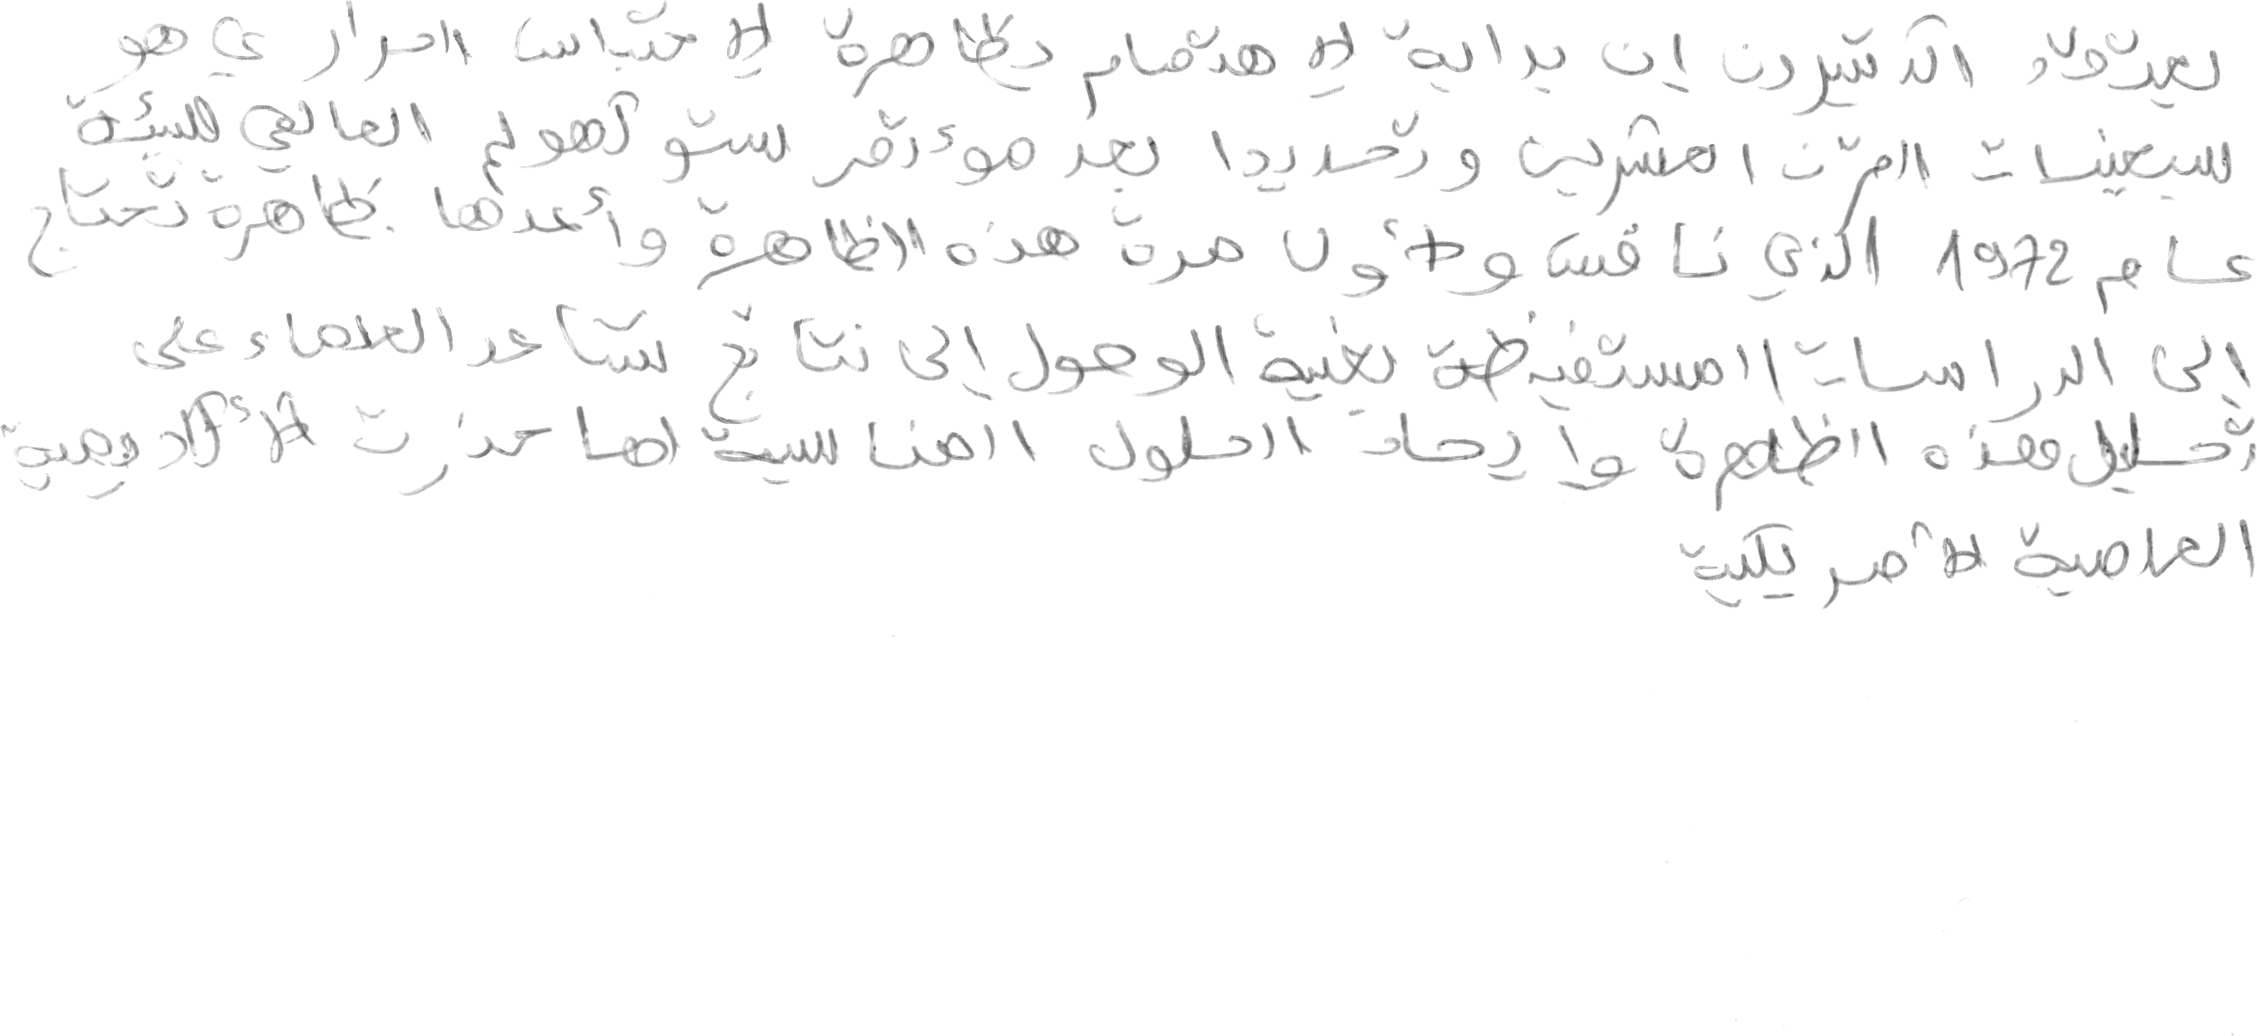 يعتقد الكثيرون إن بداية لإهتمام بظاهرة لإحتباس الحراري هو
سبعينيات القرن العشرين وتحديدا بعد موءتمر ستوكهولم العالمي للبيئة
عام 1972 الذي نافس ولأول مرة هذه الظاهرة وأعدها بظاهرة تحتاج
إلى الدراسات المستفيظة بغية الوصول إلى نتائج ستاعد العلماء على
تحليل هذه الظاهرة وإيجاد الحلول المناسبة لها حذرت لأكاديمية
العلمية لأمريكية